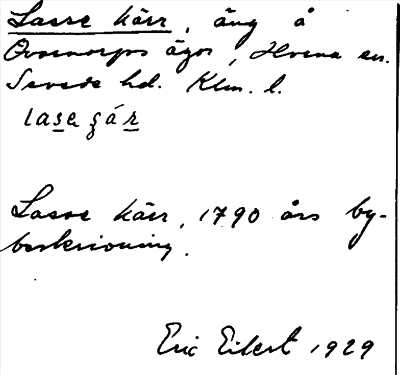 Lasse kärr, äng å
Övsrorps ägor, Hvena sn.
Sevede hd. Klm. l.
lase ʂár
Lasse kärr, 1790 års by-
beskrivning.
Eric Eilert 1929